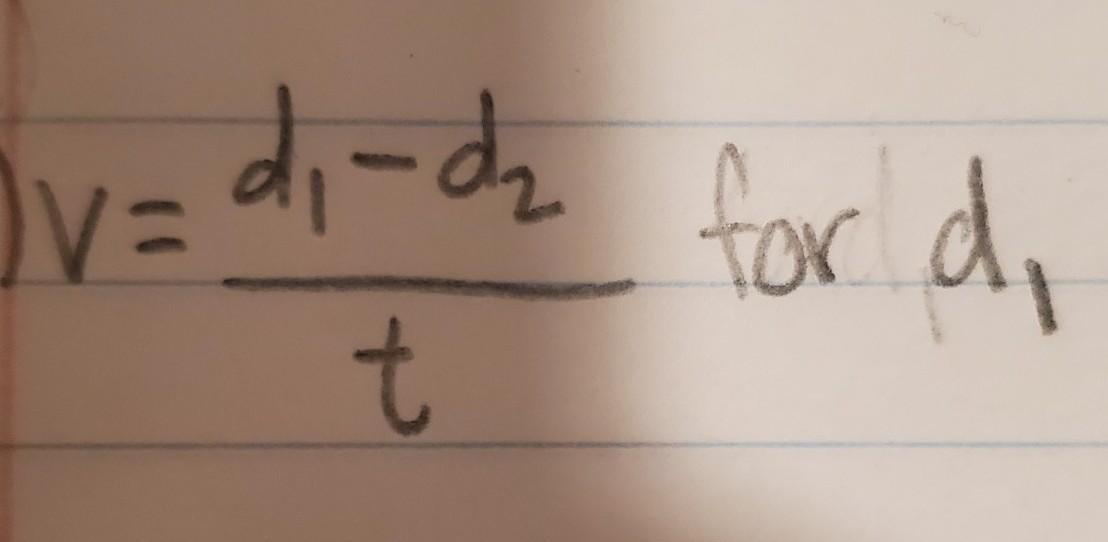 V = \frac{d_1 - d_2}{t} for d_1